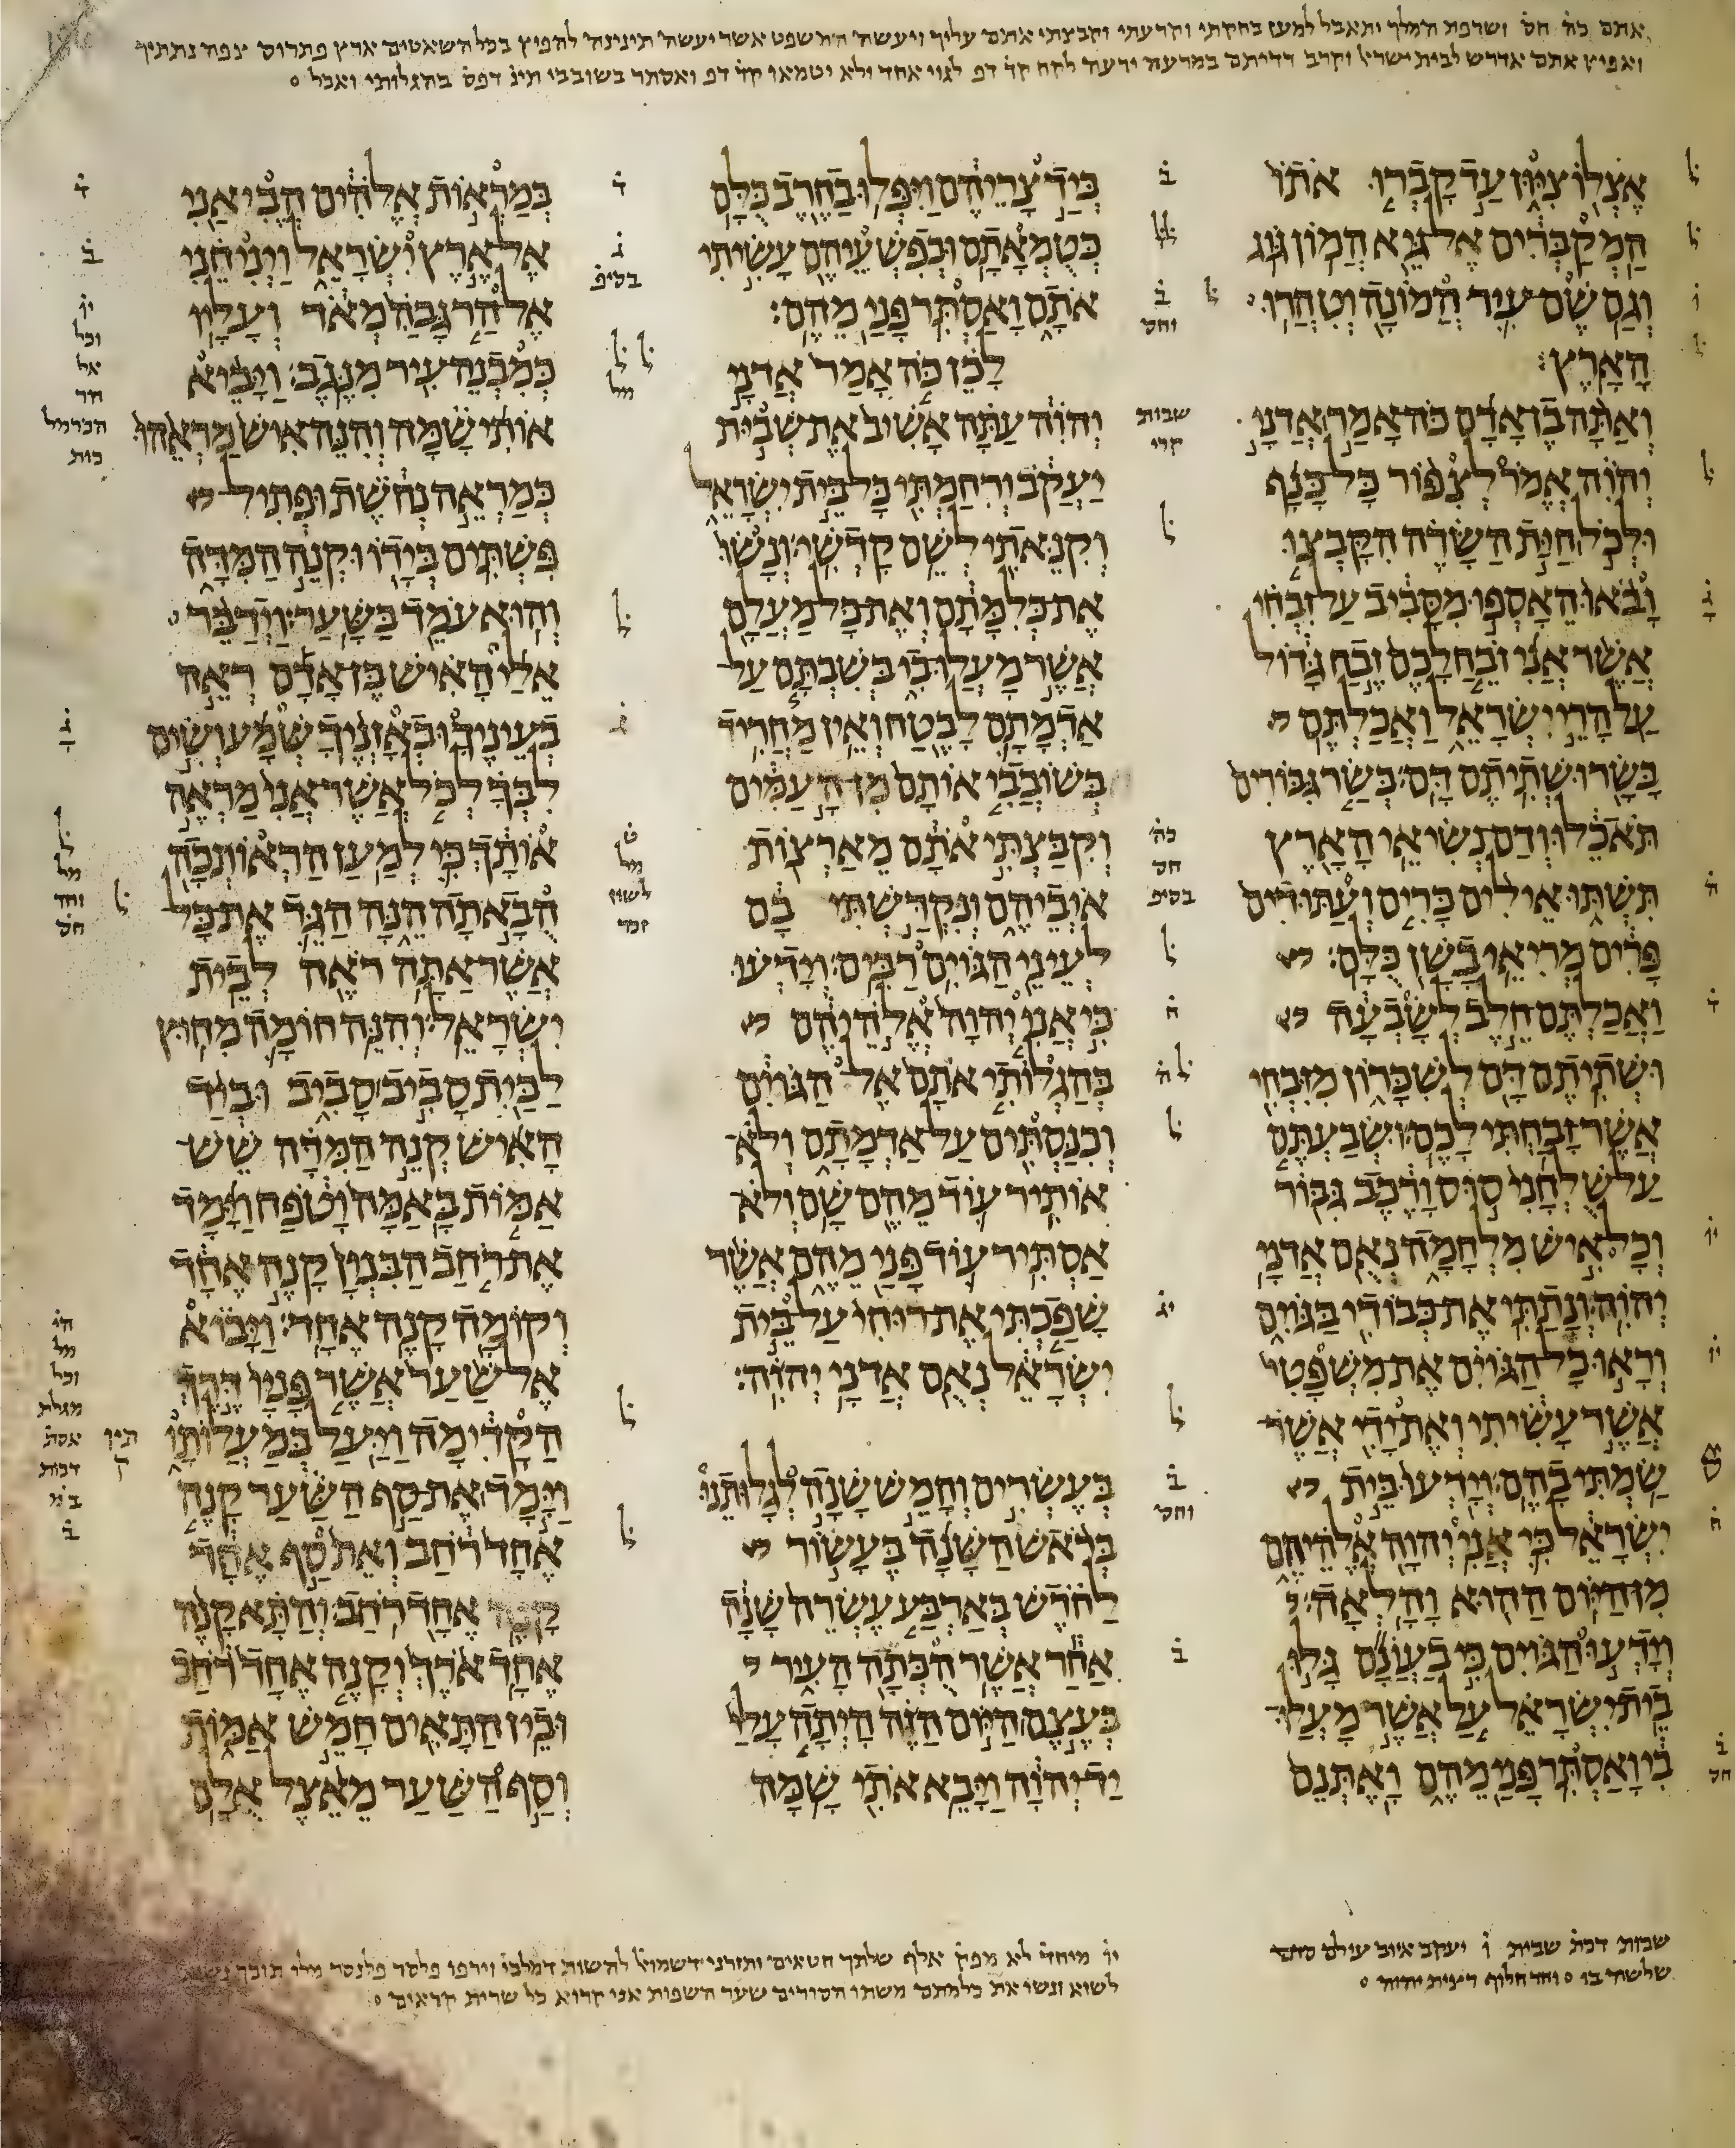 אתם כה חס ושרפת המלך ותאבל למען בחקתי והדעתי וקבצתי אתם עליך ויעשה המשפט אשר יעשה תינינה להפיץ בכל השאטים ארץ פתרוס נתתיך
ואפיץ אתם אדרש לבית ישראל וקרב לקח קד דפ לגוי אחד ולא יטמאו קד דפ ואסתר בשובבי תינ דפס בהגלותי ואכל
אצלו ציון עד קברו אתו
המקברים אל גיא המון גוג
וגם שם עיר המונה וטהרו
הארץ׃
ואתה בן אדם כה אמר אדני
יהוה אמר לצפור כל כנף
ולכל חית השדה הקבצו
ובאו האספו מסביב על זבחי
אשר אני זבח לכם זבח גדול
על הרי ישראל ואכלתם
בשר ושתיתם דם׃ בשר גבורים
תאכלו ודם נשיאי הארץ
תשתו אילים כרים ועתודים
פרים מריאי בשן כלם׃
ואכלתם חלב לשבעה
ושתיתם דם לשכרון מזבחי
אשר זבחתי לכם׃ ושבעתם
על שלחני סוס ורכב גבור
וכל איש מלחמה נאם אדני
יהוה׃ ונתתי את כבודי בגוים
וראו כל הגוים את משפטי
אשר עשיתי ואת ידי אשר
שמתי בהם׃ וידעו בית
ישראל כי אני יהוה אלהיהם
מן היום ההוא והלאה׃
וידעו הגוים כי בעונם גלו
בית ישראל על אשר מעלו
בי ואסתר פני מהם ואתנם
ביד צריהם ויפלו בחרב כלם
כטמאתם וכפשעיהם עשיתי
אתם ואסתר פני מהם׃
לכן כה אמר אדני
יהוה עתה אשיב את שבית
יעקב ורחמתי כל בית ישראל
וקנאתי לשם קדשי׃ ונשו
את כלמתם ואת כל מעלם
אשר מעלו בי בשבתם על
אדמתם לבטח ואין מחריד
בשובבי אותם מן העמים
וקבצתי אתם מארצות
איביהם ונקדשתי בם
לעיני הגוים רבים׃ וידעו
כי אני יהוה אלהיהם
בהגלותי אתם אל הגוים
וכנסתים על אדמתם ולא
אותיר עוד מהם שם׃ ולא
אסתיר עוד פני מהם אשר
שפכתי את רוחי על בית
ישראל נאם אדני יהוה׃
בעשרים וחמש שנה לגלותנו
בראש השנה בעשור
לחדש בארבע עשרה שנה
אחר אשר הכתה העיר
בעצם היום הזה היתה עלי
יד יהוה ויבא אתי שמה׃
במראות אלהים הביאני
אל ארץ ישראל ויניחני
אל הר גבה מאד ועליו
כמבנה עיר מנגב׃ ויביא
אותי שמה והנה איש מראהו
כמראה נחשת ופתיל
פשתים בידו וקנה המדה
והוא עמד בשער׃ וידבר
אלי האיש בן אדם ראה
בעיניך ובאזניך שמע ושים
לבך לכל אשר אני מראה
אותך כי למען הראותכה
הבאתה הנה הגד את כל
אשר אתה ראה לבית
ישראל׃ והנה חומה מחוץ
לבית סביב סביב וביד
האיש קנה המדה שש
אמות באמה וטפח וימד
את רחב הבנין קנה אחד
וקומה קנה אחד׃ ויבוא
אל שער אשר פניו דרך
הקדימה ויעל במעלותו
וימד את סף השער קנה
אחד רחב ואת סף אחד
קנה אחד רחב׃ והתא קנה
אחד ארך וקנה אחד רחב
ובין התאים חמש אמות
וסף השער מאצל אולם
שבות דכת שבית ו יעקב איוב עולם
שלשה בו וחד חלוף
יו מיחד לא מפק אלף שלחך חטאים ותזרני דשמואל להשות דמלכי וירפו פלסר פלנסר מלו תוכך
לשוא ונשו את כלמתם משתו הסורים שער השפות אני קרוא כל שרית קראים